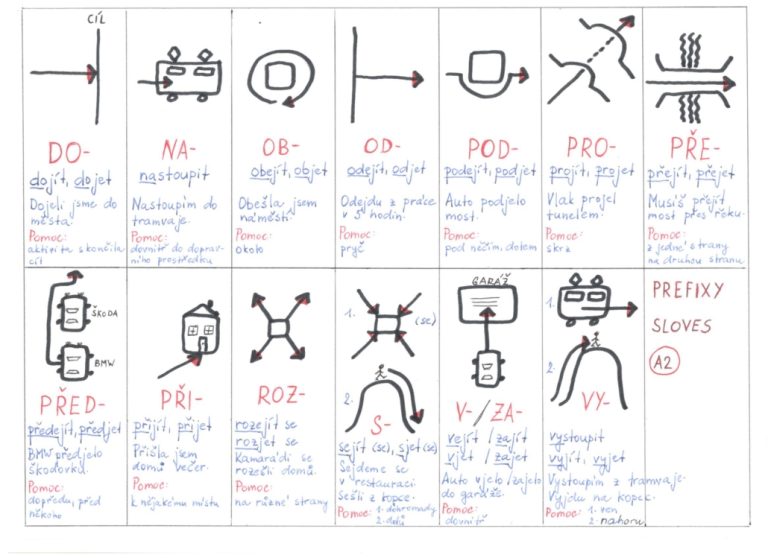 CÍL
DO-
dojít, dojet
Dojeli jsme do
města.
Pomoc:
aktivita skončila
cíl
NA-
nastoupit
Nastoupím do
tramvaje.
Pomoc:
dovnitř do doprav-
ního prostředku
OB-
obejít, objet
Obešla jsem
náměstí.
Pomoc:
okolo
OD-
odejít, odjet
Odejdu z práce
v 5 hodin.
Pomoc:
pryč
POD-
podejít, podjet
Auto podjelo
most.
Pomoc:
pod něčím, dolem
PRO-
projít, projet
Vlak projel
tunelem.
Pomoc:
skrz
PŘE-
přejít, přejet
Musíš přejít
most přes řeku.
Pomoc:
z jedné strany
na druhou stranu
ŠKODA
BMW
PŘED-
předejít, předjet
BMW předjelo
škodovku.
Pomoc:
dopředu, před
někoho
PŘI-
přijít, přijet
Přišla jsem
domů večer.
Pomoc:
k nějakému místu
ROZ-
rozejít se
rozjet se
Kamarádi se
rozešli domů.
Pomoc:
na různé strany
1.
(se)
2.
S-
sejít (se), sjet (se)
Sejdeme se
v restauraci
Sešli z kopce.
Pomoc: 1. dohromady
2. dolů
GARÁŽ
V-/ZA-
vejít / zajít
vjet / zajet
Auto vjelo / zajelo
do garáže.
Pomoc:
dovnitř
1.
2.
VY-
vystoupit
vyjít, vyjet
Vystoupím z tramvaje.
Vyjdu na kopec.
Pomoc: 1. ven
2. nahoru
PREFIXY
SLOVES
A2